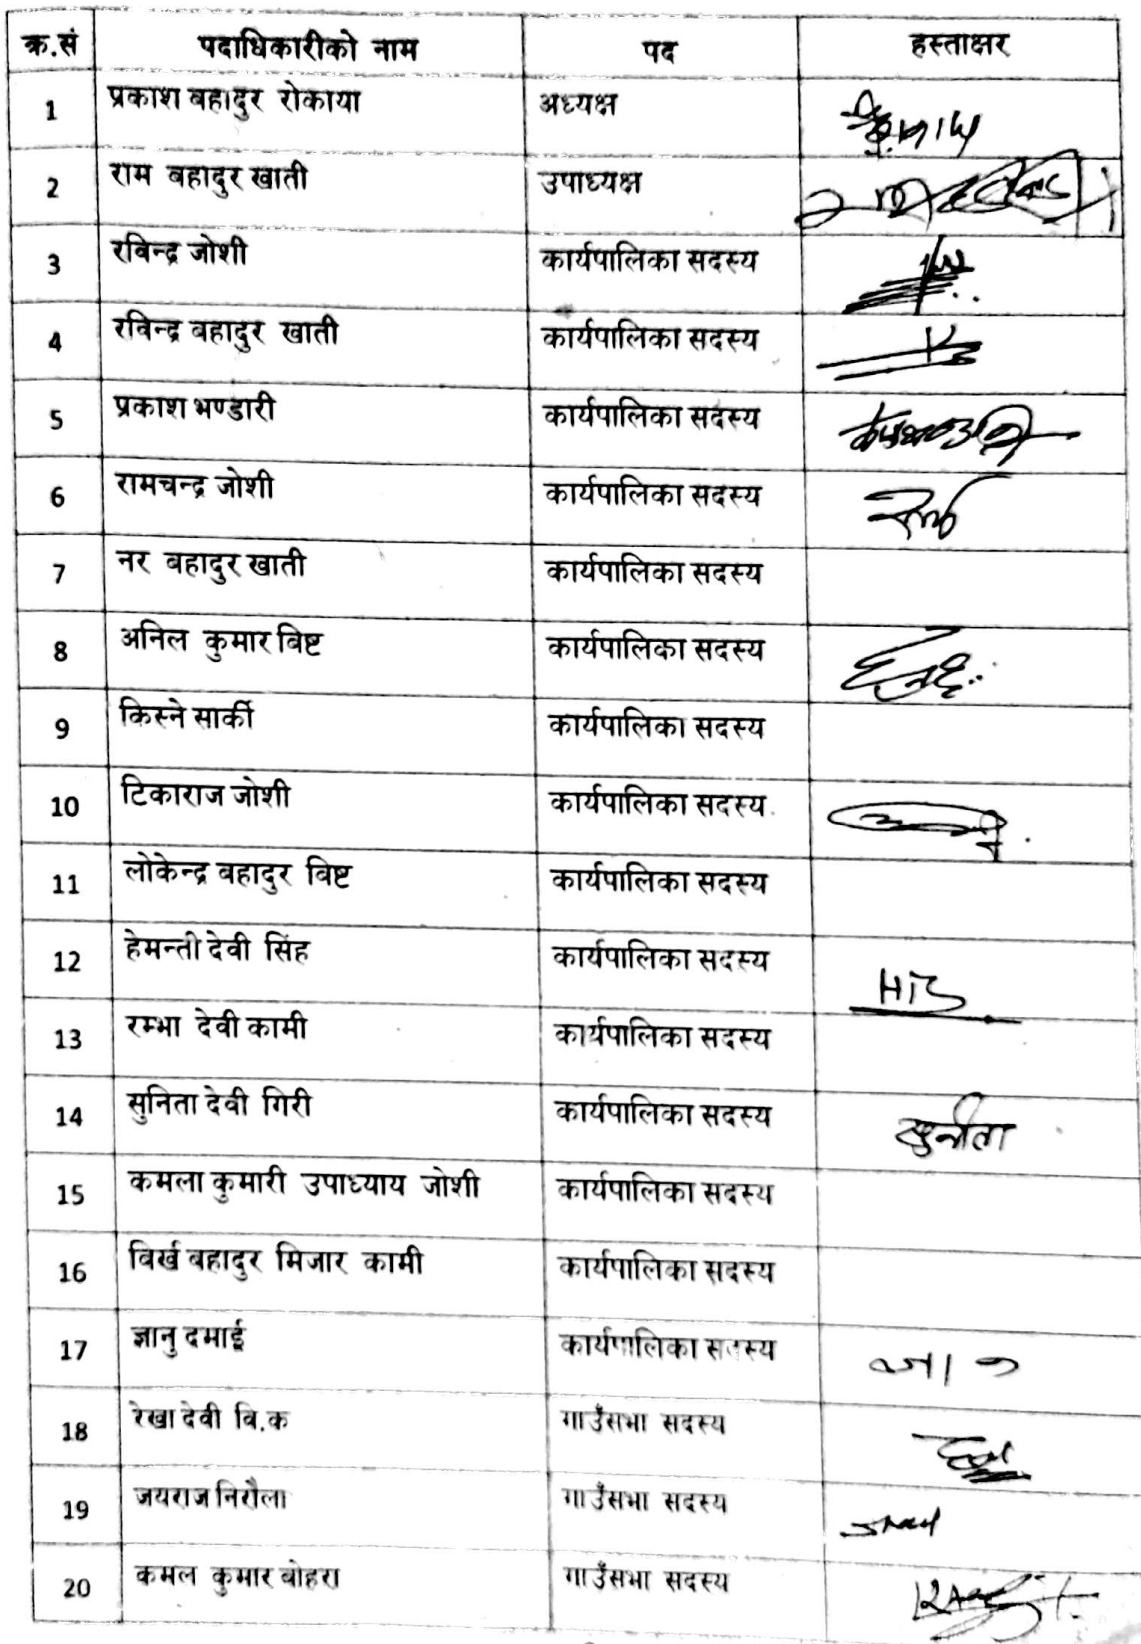 क्र.सं पदाधिकारीको नाम पद हस्ताक्षर
1 प्रकाश बहादुर रोकाया अध्यक्ष
2 राम बहादुर खाती उपाध्यक्ष
3 रविन्द्र जोशी कार्यपालिका सदस्य
4 रविन्द्र बहादुर खाती कार्यपालिका सदस्य
5 प्रकाश भण्डारी कार्यपालिका सदस्य
6 रामचन्द्र जोशी कार्यपालिका सदस्य
7 नर बहादुर खाती कार्यपालिका सदस्य
8 अनिल कुमार विष्ट कार्यपालिका सदस्य
9 किस्ने सार्की कार्यपालिका सदस्य
10 टिकाराज जोशी कार्यपालिका सदस्य
11 लोकेन्द्र बहादुर विष्ट कार्यपालिका सदस्य
12 हेमन्ती देवी सिंह कार्यपालिका सदस्य
13 रम्भा देवी कामी कार्यपालिका सदस्य
14 सुनिता देवी गिरी कार्यपालिका सदस्य सुनीता
15 कमला कुमारी उपाध्याय जोशी कार्यपालिका सदस्य
16 विर्ख बहादुर मिजार कामी कार्यपालिका सदस्य
17 ज्ञानु दमाई कार्यपालिका सदस्य
18 रेखा देवी वि.क गाउँसभा सदस्य
19 जयराज निरौला गाउँसभा सदस्य
20 कमल कुमार बोहरा गाउँसभा सदस्य